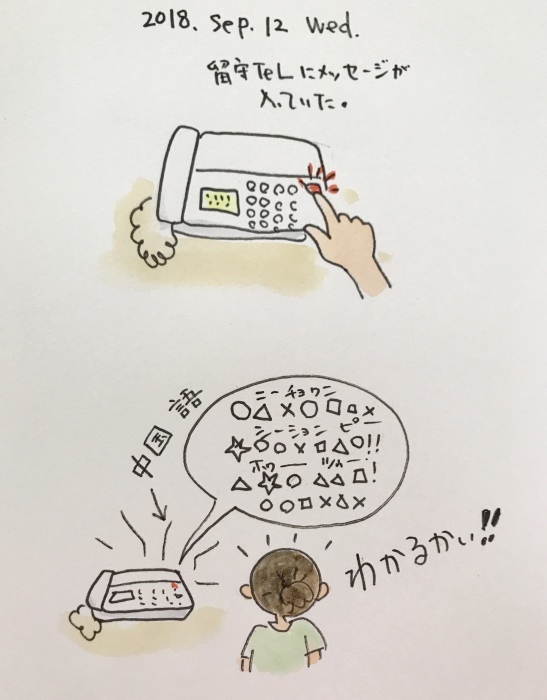 2018. Sep. 12 Wed.
留守TeLにメッセージが
入っていた。
中国語
ニーチョワン
○△×○□□×
シーション ピー
☆○○×□△○!!
ホワー ツゥー
△☆○△△□!
○○□×△×
わかるかい!!